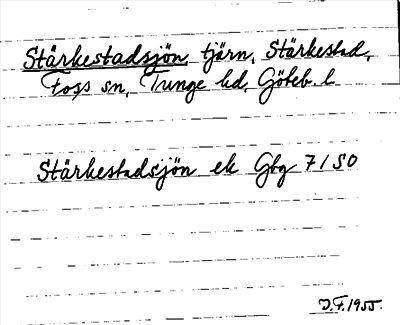 Stärkestadsjön, tjärn, Stärkestad,
Foss sn, Tunge hd, Göteb. l
Stärkestadsjön ek Gbg 7 / SO
J.F. 1955.